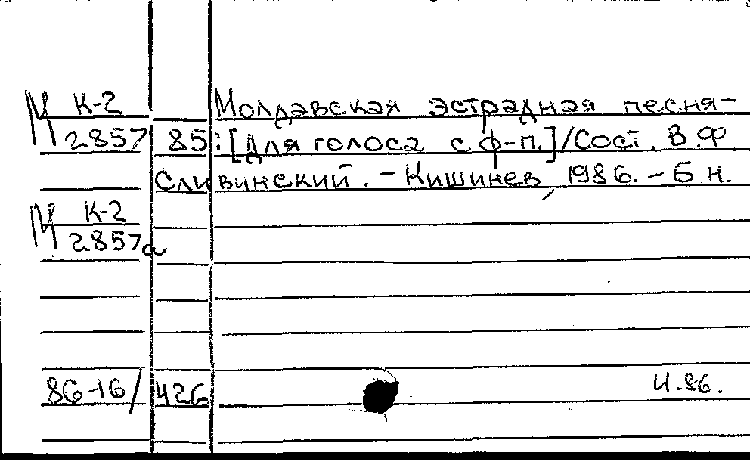 М К-2 Молдавская эстрадная песня-
2857 85: [Для голоса с ф-п.] / Сост. В.Ф
Сливинский. - Кишинев, 1986. - Б.н.
М К-2
2857а
86-16/426 И.86.